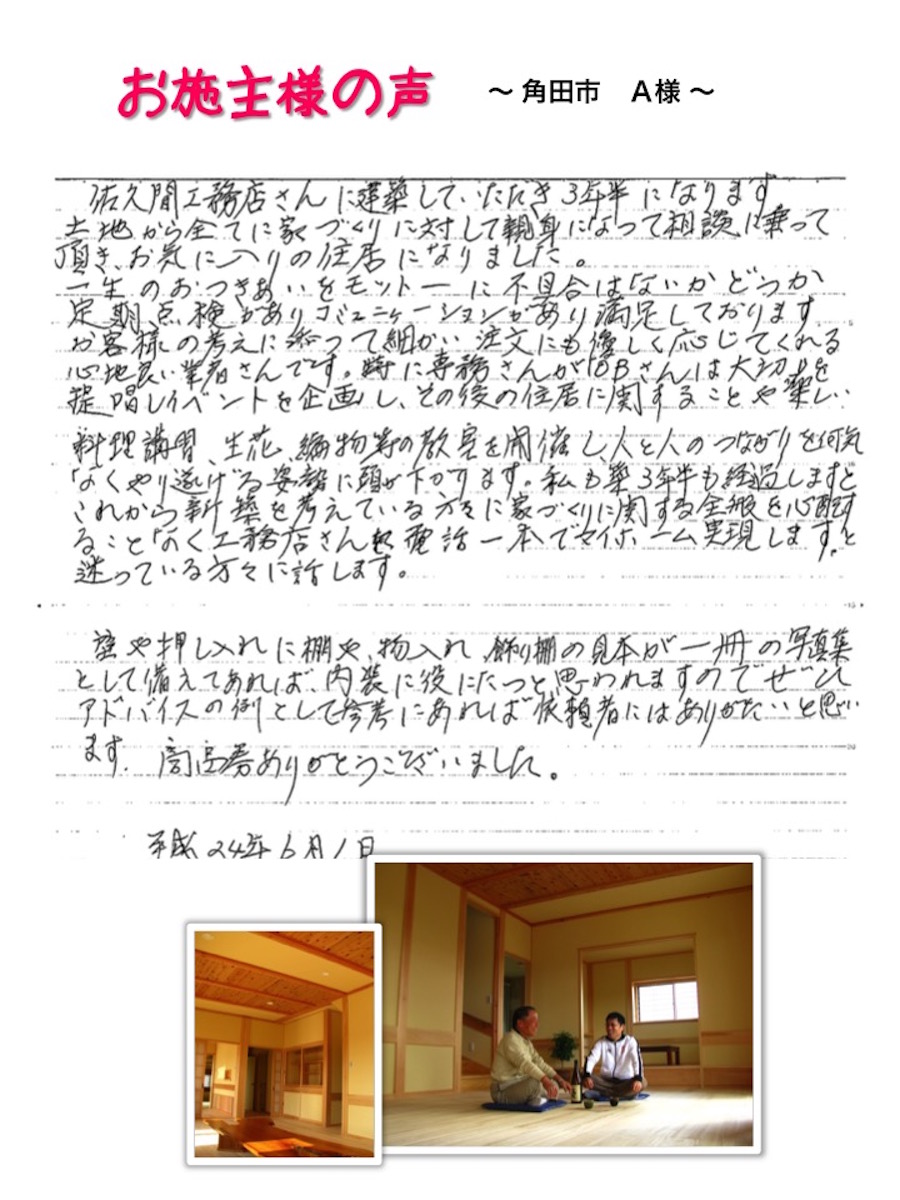 お施主様の声
～ 角田市　A様 ～
佐久間工務店さんに建築していただき3年半になります
土地から全てに家づくりに対して親身になって相談に乗って
頂き、お気に入りの住居になりました。
一生のおつきあいをモットーに不具合はないかどうか
定期点検がありコミュニケーションがあり満足しております
お客様の考えに添って細かい注文にも優しく応じてくれる
心地良い業者さんです。特に専務さんがOBさんは大切を
提唱しイベントを企画し、その後の住居に関することや楽しい
料理講習、生花、編物等の教室を開催し人と人のつながりを何気
なくやり遂げる姿勢に頭が下がります。私も築3年半も経過しますと
これから新築を考えている方々に家づくりに関する全般を心配す
ることなく工務店さん電話一本でマイホーム実現しますと
迷っている方々に話します。
壁や押し入れに棚や、物入れ、飾り棚の見本が一冊の写真集
として備えてあれば、内装に役にたつと思われますのでぜひ
アドバイスの例として参考にあれば依頼者にはありがたいと思い
ます。商品券ありがとうございました。
平成24年6月1日